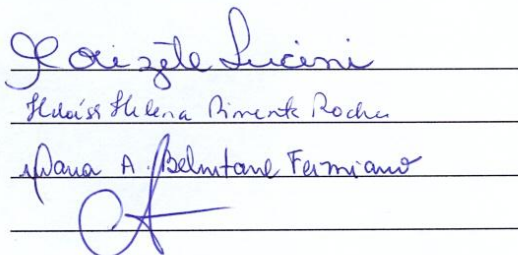 Loizéte Lucini
Heloísa Helena Pimenta Rocha
Maria A. Belintane Fermiano